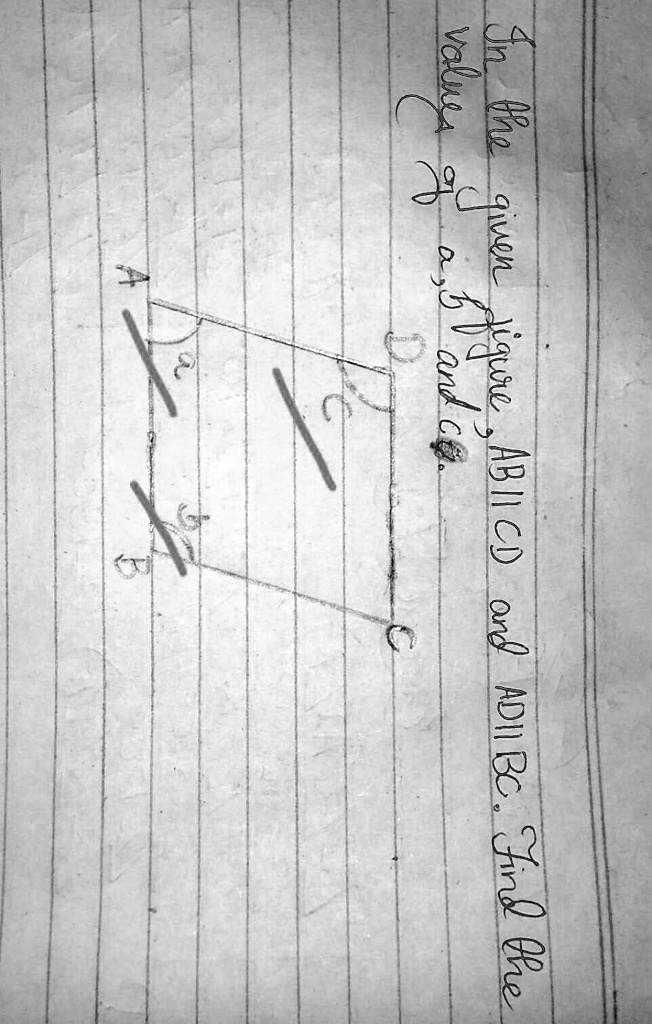 In the given figure, AB||CD and AD||BC. Find the
values of a, b and c.
D
C
c
a
b
A
B